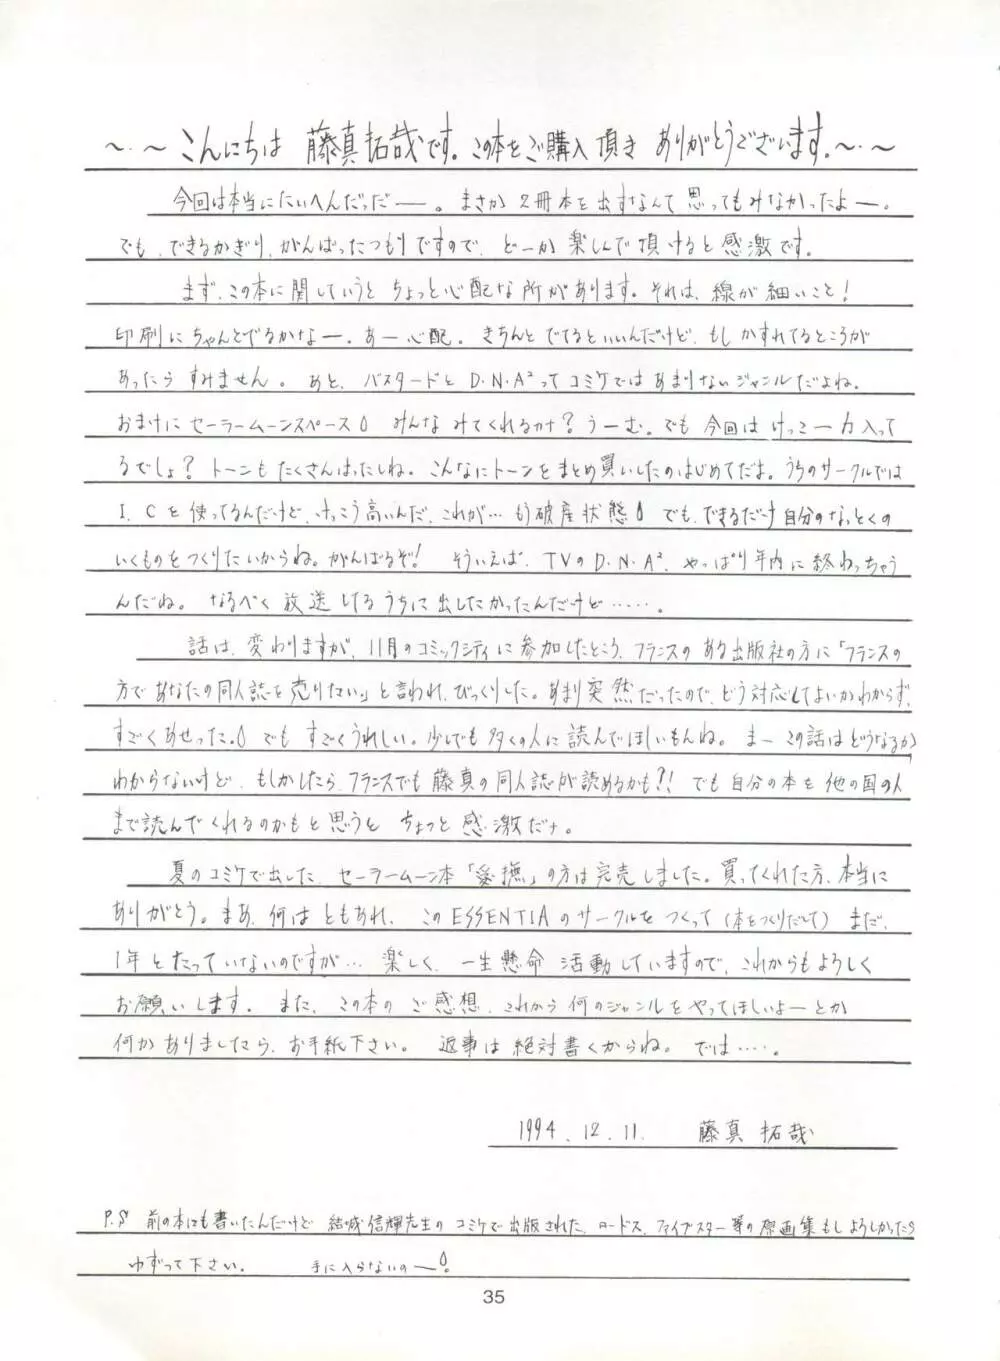 ～・～こんにちは 藤真拓哉です。この本をご購入頂き ありがとうございます。～・～
今回は本当にたいへんだっだー。まさか2冊本を出すなんて思ってもみなかったよー。
でも、できるかぎり、がんばったつもりですので、どーか楽しんで頂けると感激です。
まず、この本に関していうとちょっと心配な所があります。それは、線が細いこと！
印刷にちゃんとでるかなー。あー心配。きちんとでてるといいんだけど、もしかすれてるところが
あったらすみません。あと、バスタードとD・N・A²ってコミケではあまりないジャンルだよね。
おまけにセーラームーンスペース みんなみてくれるカナ？うーむ。でも今回はけっこー力入って
るでしょ？トーンもたくさんはったしね。こんなにトーンをまとめ買いしたのはじめてだよ。うちのサークルでは
I.Cを使ってるんだけど、けっこう高いんだ、これが…もう破産状態 でも、できるだけ自分のなっとくの
いくものをつくりたいからね。がんばるぞ！ そういえば、TVのD・N・A²、やっぱり年内に終わっちゃう
んだね。なるべく放送してるうちに出したかったんだけど……。
話は、変わりますが、11月のコミックシティに参加したところ、フランスのある出版社の方に「フランスの
方であなたの同人誌を売りたい」と言われ、びっくりした。あまり突然だったので、どう対応してよいかわからず、
すごくあせった。 でもすごくうれしい。少しでも多くの人に読んでほしいもんね。まーこの話はどうなるか
わからないけど、もしかしたら、フランスでも藤真の同人誌が読めるかも？！でも自分の本を他の国の人
まで読んでくれるのかもと思うとちょっと感激だナ。
夏のコミケで出した、セーラームーン本「愛撫」の方は完売しました。買ってくれた方、本当に
ありがとう。まあ、何はともあれ、このESSENTIAのサークルをつくって（本をつくりだして）まだ、
1年とたっていないのですが…楽しく、一生懸命活動していますので、これからもよろしく
お願いします。また、この本のご感想、これから何のジャンルをやってほしいよーとか
何かありましたら、お手紙下さい。返事は絶対書くからね。では……。
1994.12.11. 藤真拓哉
P.S 前の本にも書いたんだけど 結城信輝先生のコミケで出版された、ロードス、ファイブスター等の原画集もしよろしかったら
ゆずって下さい。 手に入らないのー！
35